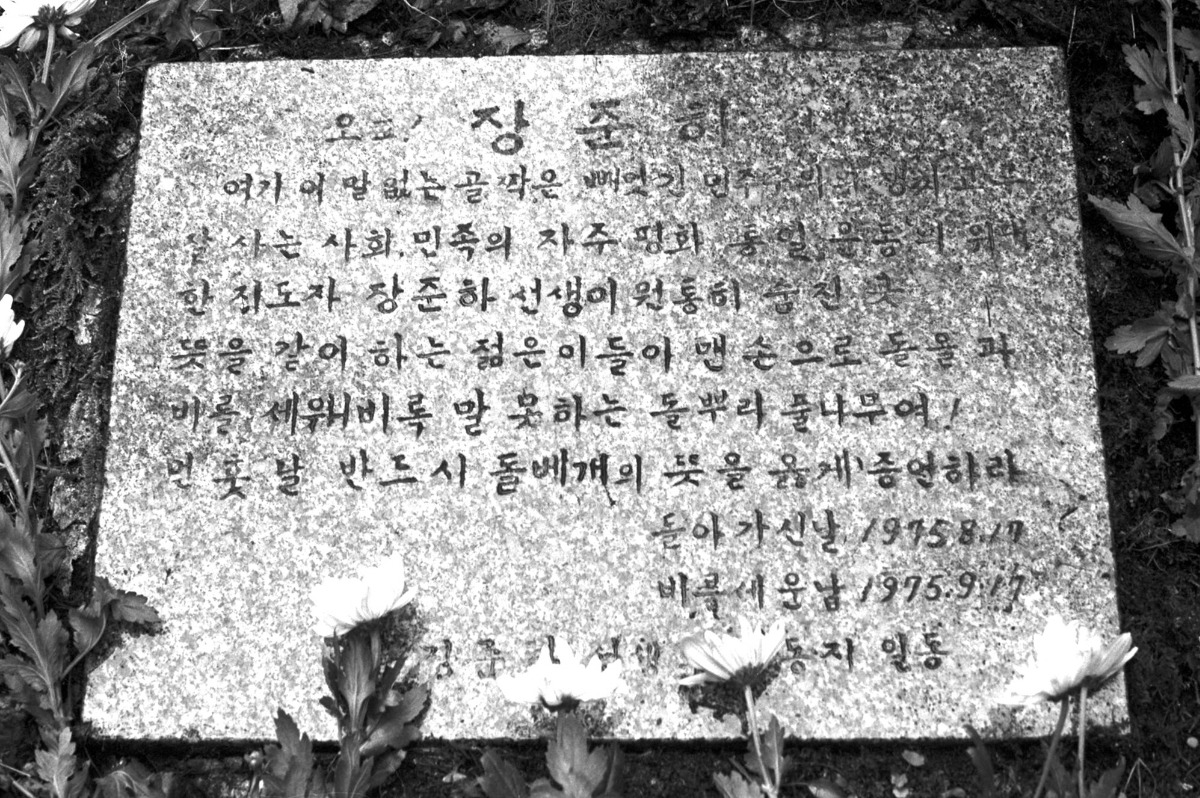 오호! 장 준 하
여기 이 말없는 골짝은 빼앗긴 민주주의의
잘 사는 사회, 민족의 자주 평화 통일 운동의 위대
한 지도자 장준하 선생이 원통히 숨진 곳
뜻을 같이 하는 젊은이들이 맨 손으로 돌을 파
비를 세워니 비록 말 못하는 돌뿌리 풀나무여!
먼 훗 날 반드시 돌베개의 뜻을 옳게 증언하라
돌아가신날 1975.8.17
비를세운날 1975.9.17
장 준 하 선생 동지 일동